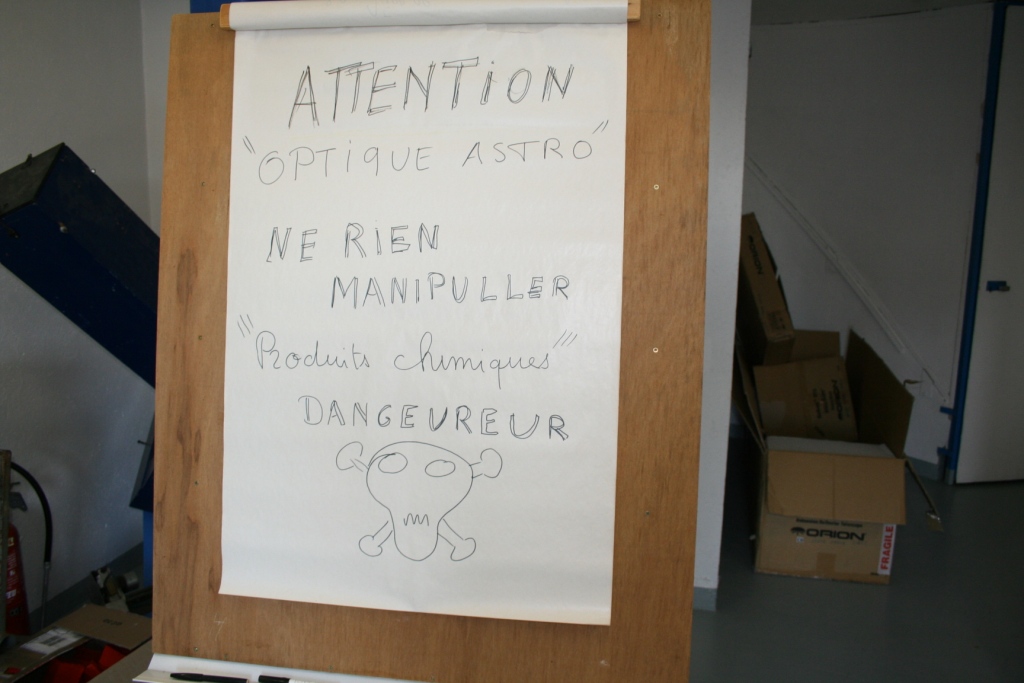 ATTENTION
"OPTIQUE ASTRO"
NE RIEN
MANIPULLER
"Produits chimiques"
DANGEUREUR
ORION
FRAGILE
ORION